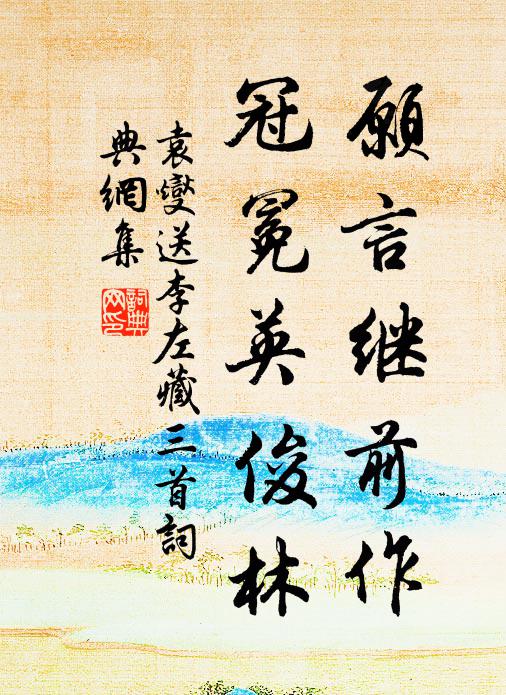 願言继前作
冠冕英俊林
袁燮送李左藏三首詞
典網集
詞典
网印